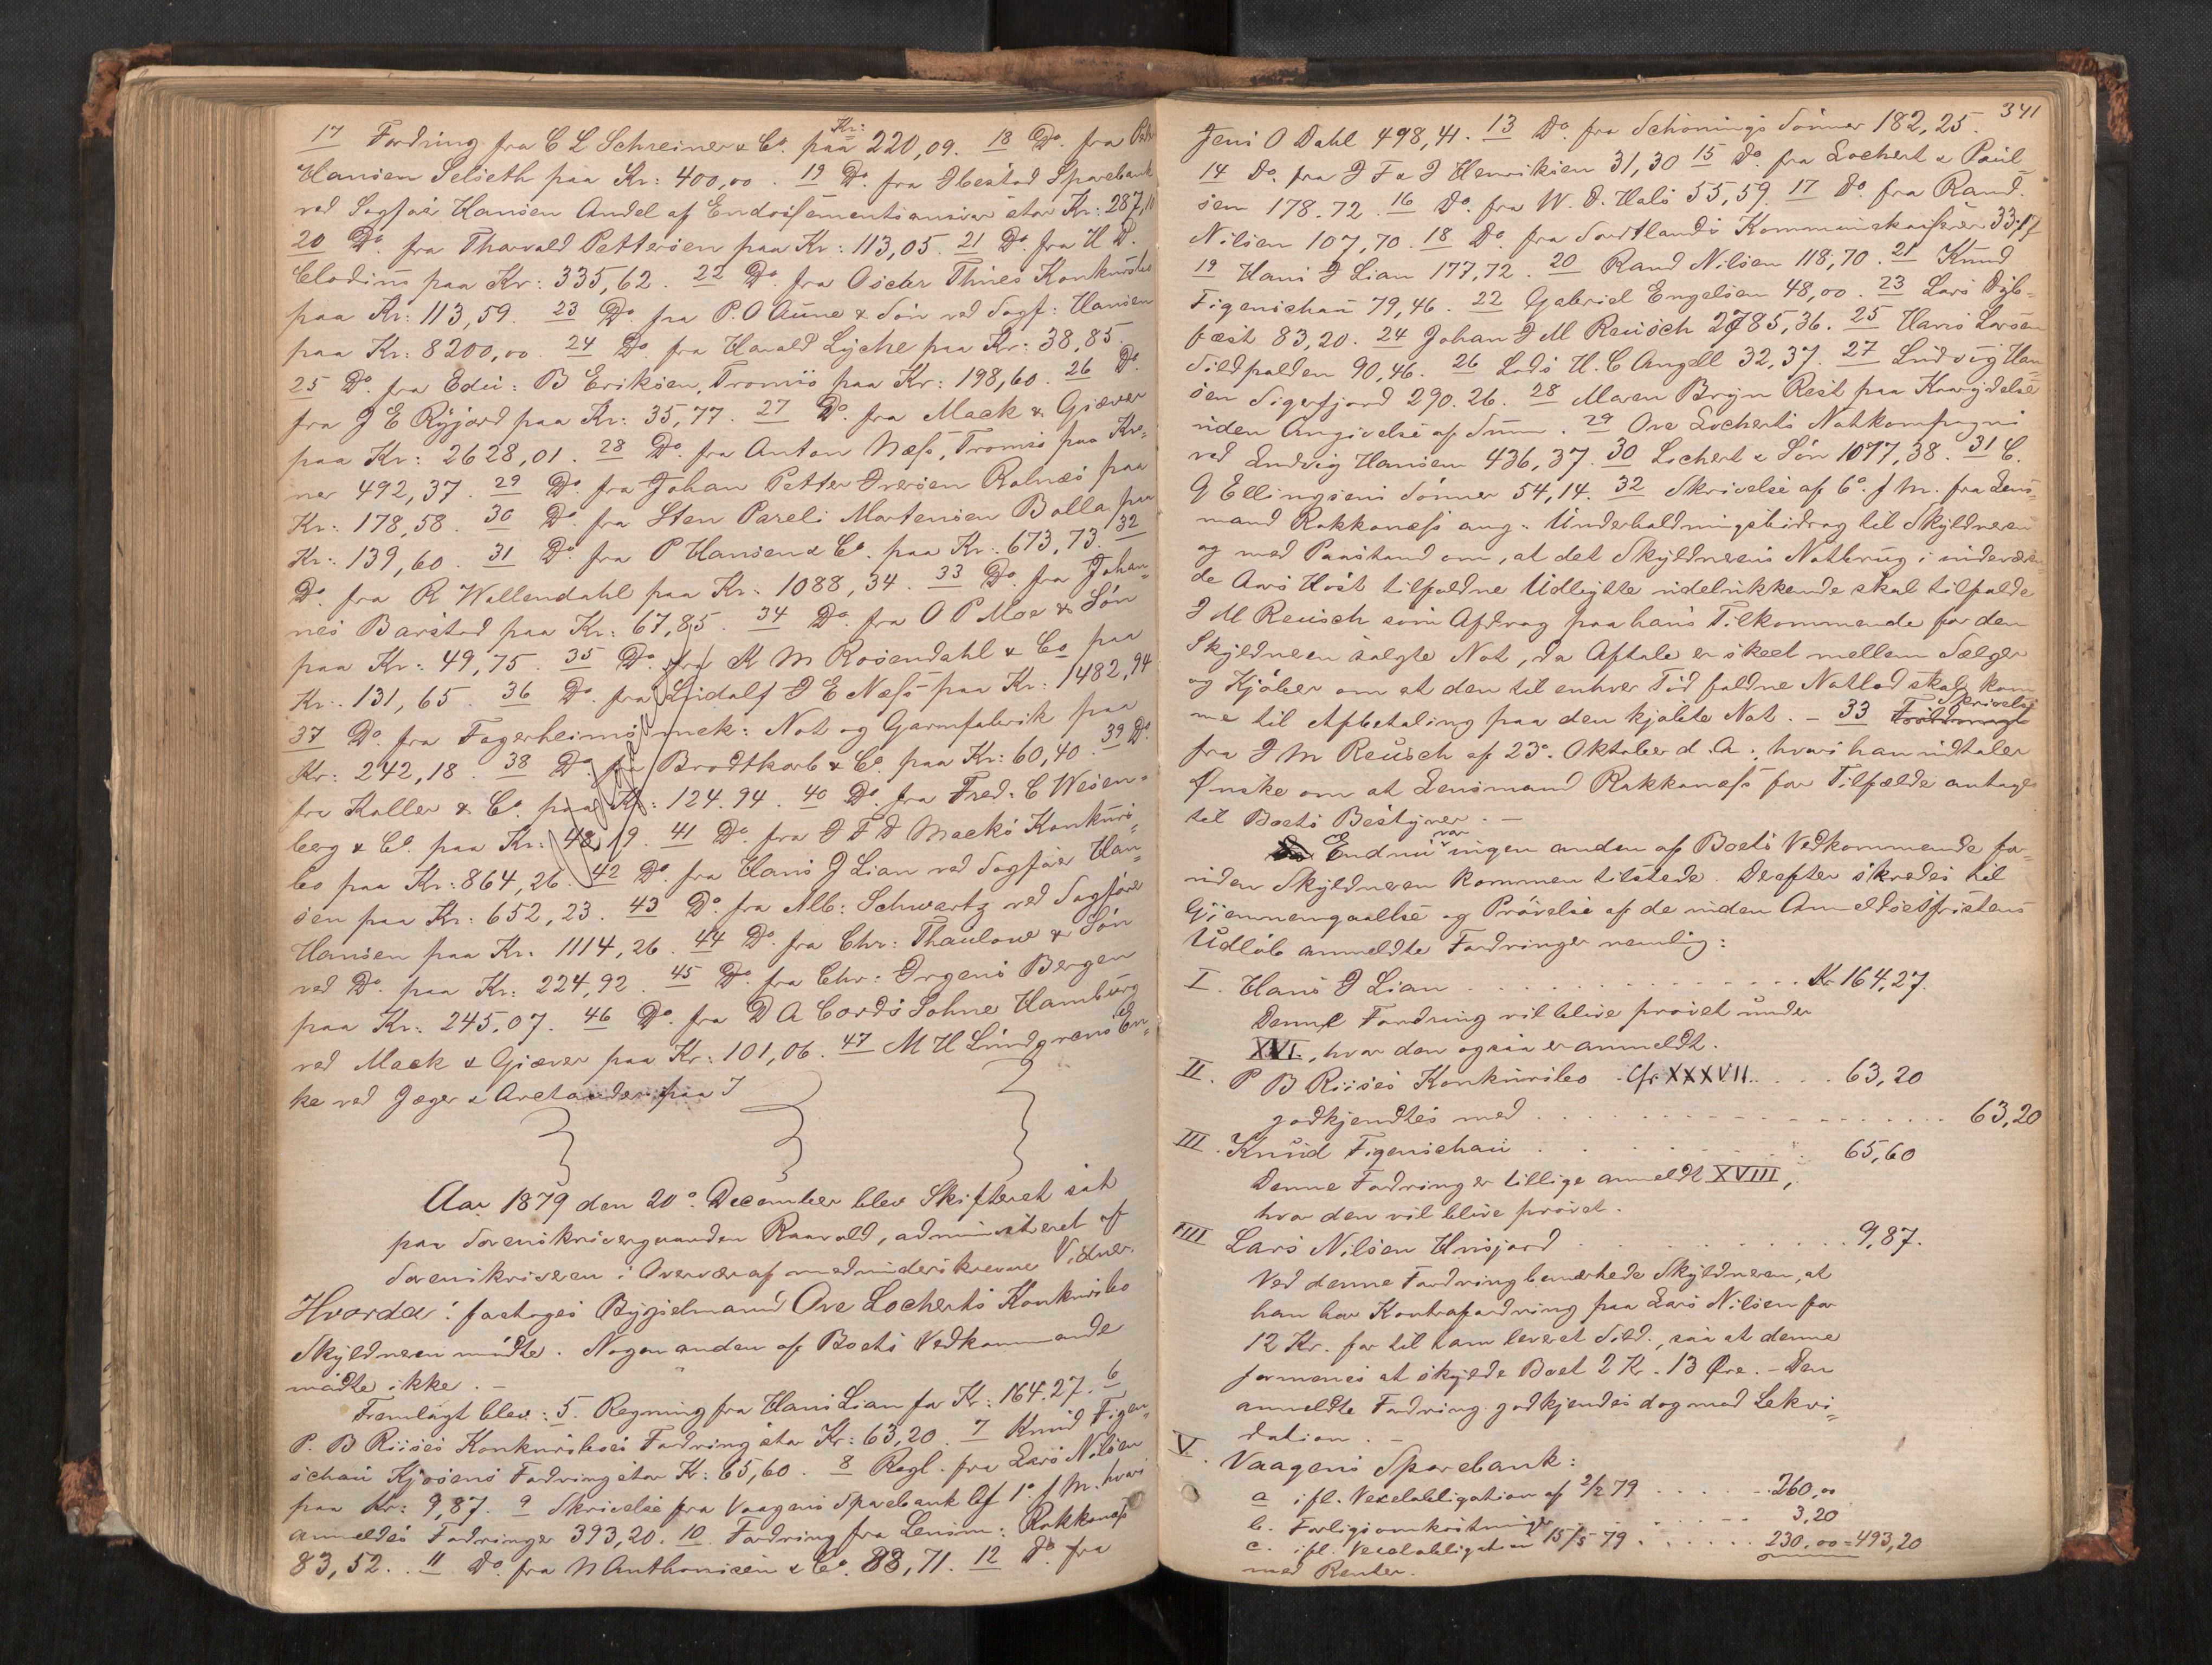 17 Fordring fra C L Schreiner & Co. paa Kr: 220,09. 18 Do. fra
Hansen Selseth paa Kr: 400,00. 19 Do. fra Ibestad Sparebank
ved Sagfører Hansen Andel af Endossementsansvar stor Kr: 287,
20 Do. fra Thorvald Pettersen paa Kr: 113,05. 21 Do. fra H D.
Clodius paa Kr: 335,62. 22 Do. fra Oscar Thues Konkursbo
paa Kr: 113,59. 23 Do. fra P. O Aune & Søn ved Sagf: Hansen
paa Kr: 8200,00. 24 Do. fra Harald Lyche paa Kr: 38,85.
25 Do. fra Edv: B Eriksen, Tromsø paa Kr: 198,60. 26 Do.
fra J E Ryjord paa Kr: 35,77. 27 Do. fra Mack & Giæver
paa Kr: 2628,01. 28 Do. fra Anton Næss, Tromsø paa Kro-
ner 492,37. 29 Do. fra Johan Petter Iversen Rolnæs paa
Kr: 178,58. 30 Do. fra Sten Pareli Mortensen Bolla paa
Kr: 139,60. 31 Do. fra P Hansen & Co. paa Kr: 673,73. 32
Do. fra R Wallendahl paa Kr: 1088,34. 33 Do. fra Johan-
nes Barstad paa Kr: 67,85. 34 Do. fra O P Moe & Søn
paa Kr: 49,75. 35 Do. fra K M Rosendahl & Co paa
Kr: 131,65. 36 Do. fra Lidolf J E Næss paa Kr: 1482,94
37 Do. fra Fagerheims mek: Not og Garnfabrik paa
Kr: 242,18. 38 Do. fra Brodtkorb & Co. paa Kr: 60,40. 39 Do.
fra Koller & Co. paa Kr: 124.94. 40 Do. fra Fred: C Wesen-
berg & Co. paa Kr: 48,19. 41 Do. fra J F D Macks Konkurs-
bo paa Kr: 864,26. 42 Do. fra Hans J Lian ved Sagfører Han-
sen paa Kr: 652,23. 43 Do. fra Alb: Schwartz ved Sagfører
Hansen paa Kr: 1114,26. 44 Do. fra Chr: Thaulow & Søn
ved Do. paa Kr: 224,92. 45 Do. fra Chr: Irgens Bergen
paa Kr: 245,07. 46 Do. fra D A Cords Sohne Hamburg
ved Mack & Giæver paa Kr: 101,06. 47 M H Lundgrens En-
ke ved Jæger & Arctander paa
Aar 1879 den 20de December blev Skifteret sat
paa Sorenskrivergaarden Raavold, administreret af
Sorenskriveren i Overvær af medunderskrevne Vidner.
Hvorda: foretoges Bygselmand Ove Locherts Konkursbo
Skyldneren mødte. Nogen anden af Boets Vedkommende
mødte ikke. –
Fremlagt blev: 5. Regning fra Hans Lian for Kr: 164.27. 6
P. B Riises Konkursboes Fordring stor Kr: 63,20. 7 Knud Figen-
schau Kjøsens Fordring stor Kr: 65,60. 8 Regl. fra Lars Nilsen
paa Kr: 9,87. 9 Skrivelse fra Vaagens Sparebank af 1ste f M. hvori
anmeldes Fordringer 393,20. 10. Fordring fra Lensm: Rokkones
83,52. 11 Do. fra N Anthonisen & Co. 88,71. 12 Do. fra
341
Jens O Dahl 498,41. 13 Do. fra Schönings Sønner 182,25.
14 Do. fra J F & J Henriksen 31,30 15 Do. fra Lochert & Paul-
sen 178.72. 16 Do. fra W. D. Hals 55,59. 17 Do. fra Rand.
Nilsen 107,70. 18 Do. fra Sortlands Kommunekasserer 33,17
19 Hans J Lian 177,72. 20 Rand Nilsen 118,70. 21 Knud
Figenschau 79,46. 22 Gabriel Engelsen 48,00. 23 Lars Dyb-
fæst 83,20. 24 Johan J M Reusch 2785,36. 25 Hans Larsen
Sildpolden 90,46. 26 Lods H. C Angell 32,37. 27 Ludvig Han-
sen Sigerfjord 290.26. 28 Maren Bryn Rest paa Kavydelse
uden Angivelse af Sum. 29 Ove Locherts Notkompagni
ved Ludvig Hansen 436,37. 30 Lochert & Søn 1077,38. 31 C.
G Ellingsens Sønner 54,14. 32 Skrivelse af 6te f M. fra Lens-
mand Rokkonæss ang: Underholdningsbidrag til Skyldneren
og med Paastand om, at det Skyldnerens Notbrug i indeværen-
de Aars Høst tilfaldne Udbytte udelukkende skal tilfalde
J M Reusch som Afdrag paa hans Tilkommende for den
Skyldneren solgte Not, da Aftale er skeet mellem Sælger
og Kjøber om at den til enhver Tid faldne Notlod skal kom-
me til Afbetaling paa den kjøbte Not. – 33 Skrivelse
fra J M Reusch af 23de Oktober d. A. hvori han udtaler
Ønske om at Lensmand Rokkonæss for Tilfælde antages
til Boets Bestyrer. –
Endnu var ingen anden af Boets Vedkommende for-
uden Skyldneren kommen tilstede. Derefter skredes til
Gjennemgaaelse og Prøvelse af de inden Anmeldelsesfristens
Udløb anmeldte Fordringer nemlig:
I. Hans J Lian . . . Kr 164,27.
Denne Fordring vil blive prøvet under
XVI., hvor den ogsaa er anmeldt.
II. P B Riises Konkursbo. Cfr XXXVII. . . . 63,20
godkjendtes med . . . 63,20
III. Knud Figenschau . . . 65,60
Denne Fordring er tillige anmeldt XVIII,
hvor den vil blive prøvet.
IIII Lars Nilsen Husjord . . . 9,87.
Ved denne Fordring bemærkede Skyldneren, at
han har Kontrafordring paa Lars Nilsen for
12 Kr. for til ham leveret Sild, saa at denne
formenes at skylde Boet 2 Kr. 13 Øre. – Den
anmeldte Fordring godkjendes dog med Lekvi-
dation. –
V. Vaagens Sparebank:
a ifl. Vexelobligation af 2/2 79 . . . 260,00
b. Forligsomkostninger . . . 3,20
c. ifl. Vexelobligation 15/5 79 . . . 230,00 = 493,20
med Renter.